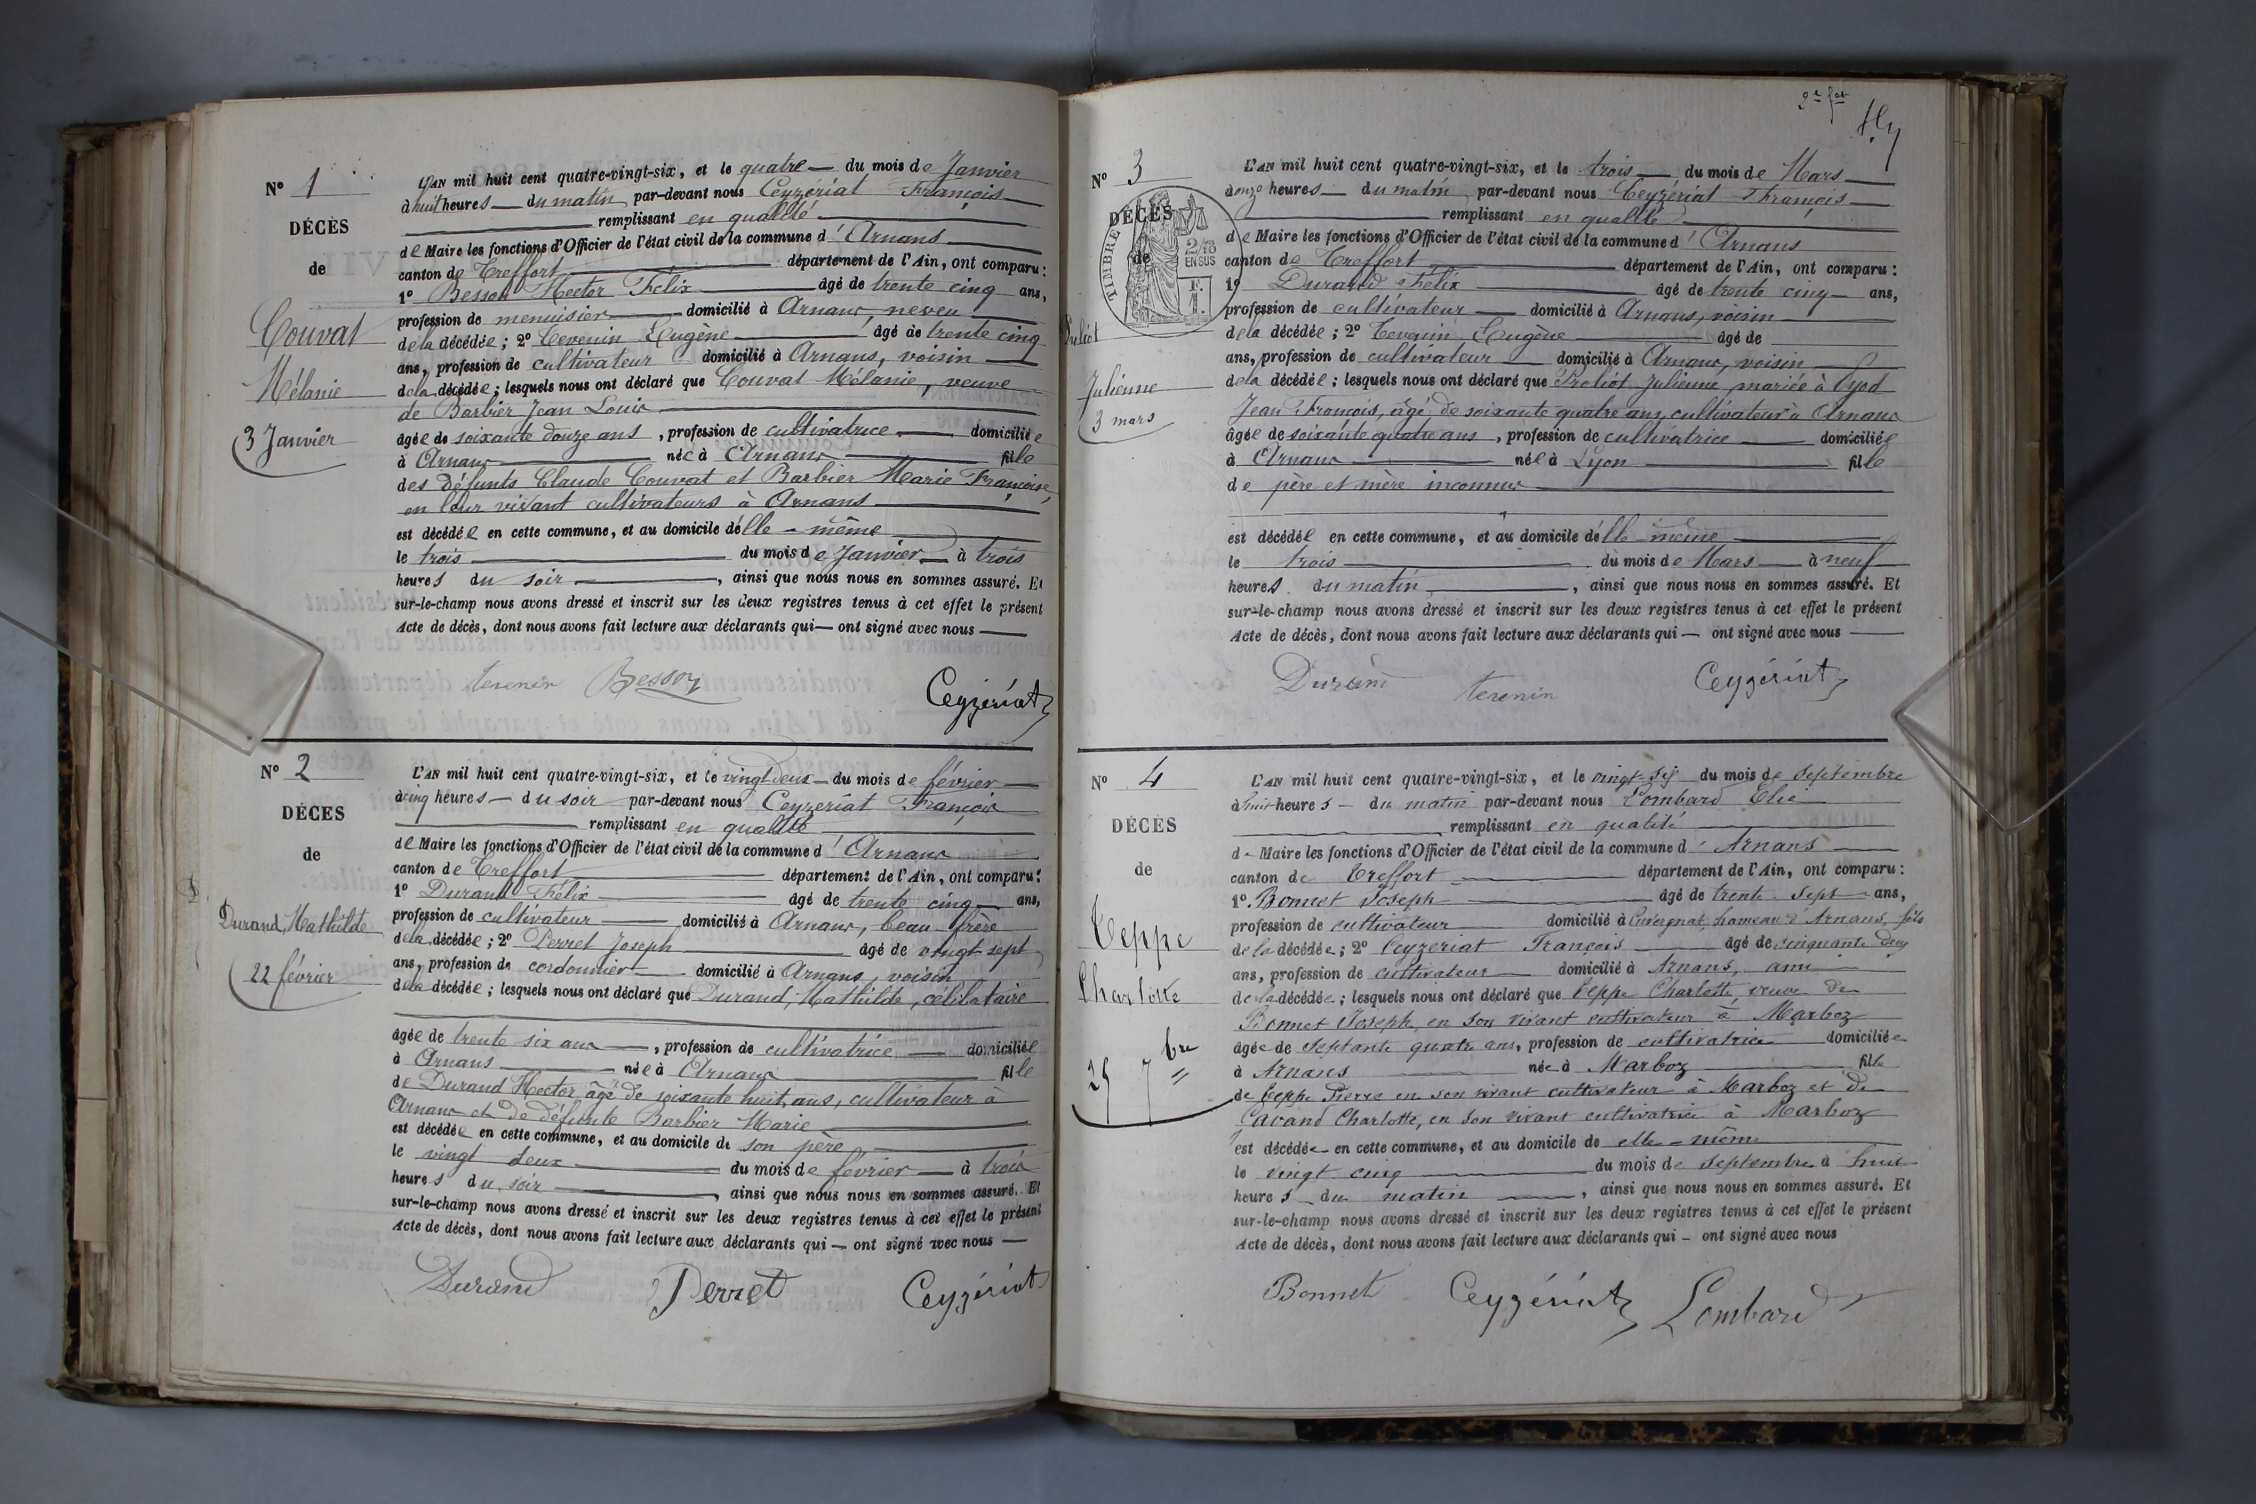 N° 1
DÉCÈS
de
Couvat
Mélanie
3 Janvier
L'AN mil huit cent quatre-vingt-six, et le quatre du mois de Janvier
à huit heures du matin par-devant nous Ceyzeriat François
remplissant en qualité
de Maire les fonctions d'Officier de l'état civil de la commune d'Arnans
canton de Treffort département de l'Ain, ont comparu:
1° Besson Hector Félix âgé de trente cinq ans,
profession de menuisier domicilié à Arnans, neveu
de la décédée; 2° Tevenin Eugène âgé de trente cinq
ans, profession de cultivateur domicilié à Arnans, voisin
de la décédée; lesquels nous ont déclaré que Couvat Mélanie, veuve
de Barbier Jean Louis
âgée de soixante douze ans, profession de cultivatrice domiciliée
à Arnans née à Arnans fille
des défunts Claude Couvat et Barbier Marie Françoise,
en leur vivant cultivateurs à Arnans
est décédée en cette commune, et au domicile d'elle-même
le trois du mois de Janvier à trois
heures du soir, ainsi que nous nous en sommes assuré. Et
sur-le-champ nous avons dressé et inscrit sur les deux registres tenus à cet effet le présent
Acte de décès, dont nous avons fait lecture aux déclarants qui — ont signé avec nous —
tevenin Besson Ceyzériat
N° 2
DÉCES
de
Durand, Mathilde
22 février
L'AN mil huit cent quatre-vingt-six, et le vingt deux du mois de février
à cinq heures du soir par-devant nous Ceyzeriat François
remplissant en qualité
de Maire les fonctions d'Officier de l'état civil de la commune d'Arnans
canton de Treffort département de l'Ain, ont comparu:
1° Durand Félix âgé de trente cinq ans,
profession de cultivateur domicilié à Arnans, beau frère
de la décédée; 2° Perret Joseph âgé de vingt sept
ans, profession de cordonnier domicilié à Arnans, voisin
de la décédée; lesquels nous ont déclaré que Durand, Mathilde, célibataire
âgée de trente six ans, profession de cultivatrice domiciliée
à Arnans née à Arnans fille
de Durand Hector âgé de soixante huit ans, cultivateur à
Arnans et de défunte Barbier Marie
est décédée en cette commune, et au domicile de son père
le vingt deux du mois de février à trois
heures du soir, ainsi que nous nous en sommes assuré. Et
sur-le-champ nous avons dressé et inscrit sur les deux registres tenus à cet effet le présent
Acte de décès, dont nous avons fait lecture aux déclarants qui — ont signé avec nous —
Durand Perret Ceyzériat
2e fet
N° 3
DÉCÈS
de
TIMBRE
2/10
EN SUS
Julienne
3 mars
L'AN mil huit cent quatre-vingt-six, et le trois du mois de Mars
à onze heures du matin par-devant nous Ceyzériat François
remplissant en qualité
de Maire les fonctions d'Officier de l'état civil de la commune d'Arnans
canton de Treffort département de l'Ain, ont comparu:
1° Durand Félix âgé de trente cinq ans,
profession de cultivateur domicilié à Arnans, voisin
de la décédée; 2° Tevenin Eugène âgé de
ans, profession de cultivateur domicilié à Arnans, voisin
de la décédée; lesquels nous ont déclaré que Julienne, mariée à
Jean François, âgé de soixante quatre ans, cultivateur à Arnans
âgée de soixante quatre ans, profession de cultivatrice domiciliée
à Arnans née à Lyon fille
de père et mère inconnus
est décédée en cette commune, et au domicile d'elle même
le trois du mois de Mars à neuf
heures du matin, ainsi que nous nous en sommes assuré. Et
sur-le-champ nous avons dressé et inscrit sur les deux registres tenus à cet effet le présent
Acte de décès, dont nous avons fait lecture aux déclarants qui — ont signé avec nous —
Durand tevenin Ceyzériat
N° 4
DÉCÈS
de
Teppe
Charlotte
25 7bre
L'AN mil huit cent quatre-vingt-six, et le vingt-six du mois de Septembre
à huit heures du matin par-devant nous Lombard Elie
remplissant en qualité
de Maire les fonctions d'Officier de l'état civil de la commune d'Arnans
canton de Treffort département de l'Ain, ont comparu:
1° Bonnet Joseph âgé de trente-sept ans,
profession de cultivateur domicilié à hameau d'Arnans, fils
de la décédée; 2° Ceyzeriat François âgé de cinquante
ans, profession de cultivateur domicilié à Arnans, ami
de la décédée; lesquels nous ont déclaré que Teppe Charlotte, veuve de
Bonnet Joseph, en son vivant cultivateur à Marboz
âgée de septante quatre ans, profession de cultivatrice domiciliée
à Arnans née à Marboz fille
de Teppe Pierre en son vivant cultivateur à Marboz et de
Charlotte, en son vivant cultivatrice à Marboz
est décédée en cette commune, et au domicile de elle-même
le vingt cinq du mois de septembre à huit
heures du matin, ainsi que nous nous en sommes assuré. Et
sur-le-champ nous avons dressé et inscrit sur les deux registres tenus à cet effet le présent
Acte de décès, dont nous avons fait lecture aux déclarants qui — ont signé avec nous
Bonnet Ceyzériat Lombard